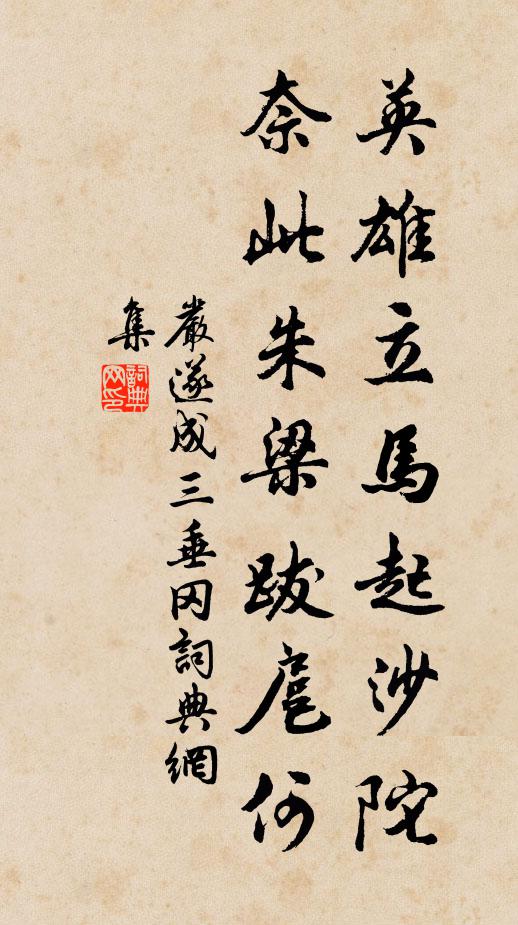 英雄立馬起沙陀
奈此朱梁跋扈何
嚴遂成三垂冈詞典網
集
詞典
网印